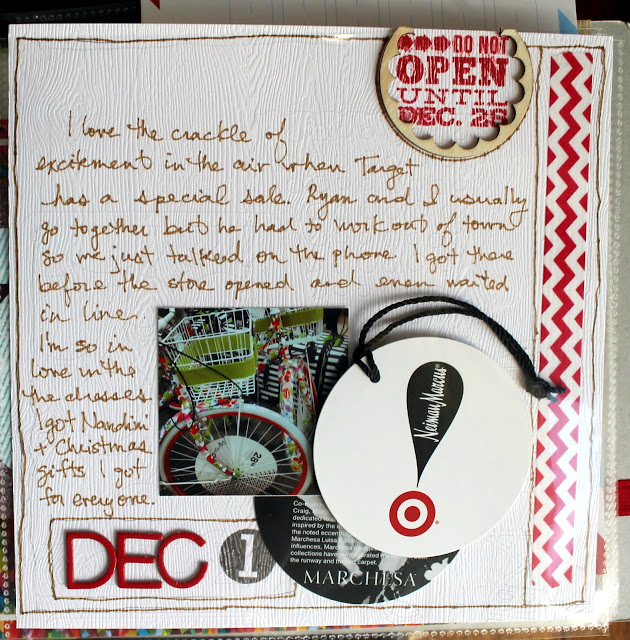 DO NOT
OPEN
UNTIL
DEC. 25
I love the crackle of
excitement in the air when Target
has a special sale. Ryan and I usually
go together but he had to work out of town
so we just talked on the phone. I got there
before the store opened and even waited
in line.
I'm so in
love with
the dresses
I got Nandini
+ Christmas
gifts I got
for everyone.
28"
Neiman Marcus
Co-
Craig,
dedicated
inspired by the
the noted eccen
Marchesa Luisa
influences, Marchesa
collections have
the runway and the carpet.
MARCHESA
DEC 1